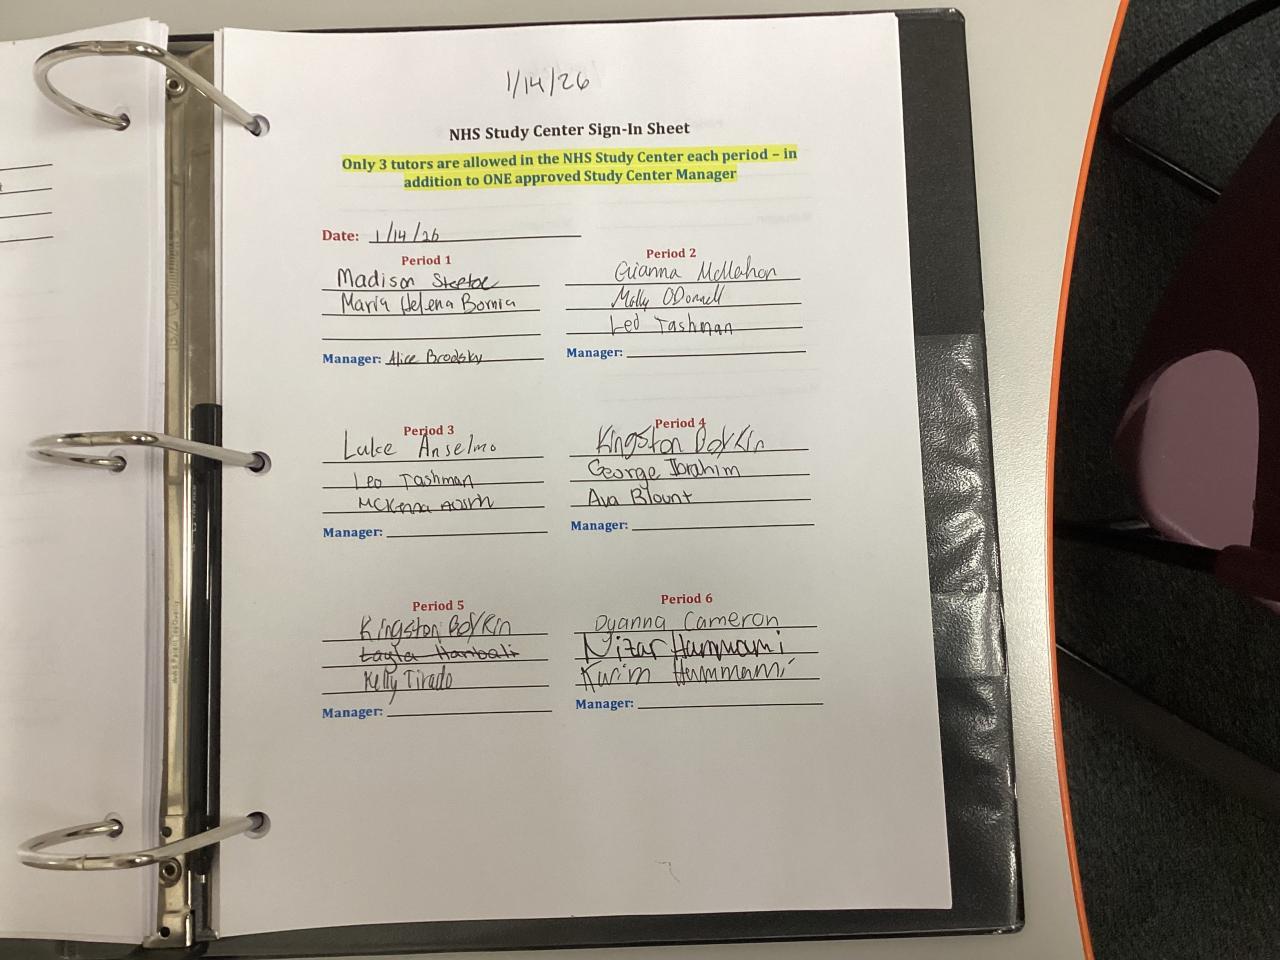 1/14/26
NHS Study Center Sign-In Sheet
Only 3 tutors are allowed in the NHS Study Center each period – in
addition to ONE approved Study Center Manager
Date: 1/14/26
Period 1
Madison Steptoe
Maria Helena Bornia
Manager: Alice Brodsky
Period 2
Gianna McMahon
Molly ODonnell
Leo Tashman
Manager:
Period 3
Luke Anselmo
Leo Tashman
McKenna
Manager:
Period 4
Kingston Boykin
George Ibrahim
Ava Blount
Manager:
Period 5
Kingston Boykin
Layla Hambali
Kelly Tirado
Manager:
Period 6
Dyanna Cameron
Nizar Hammami
Karim Hammami
Manager: